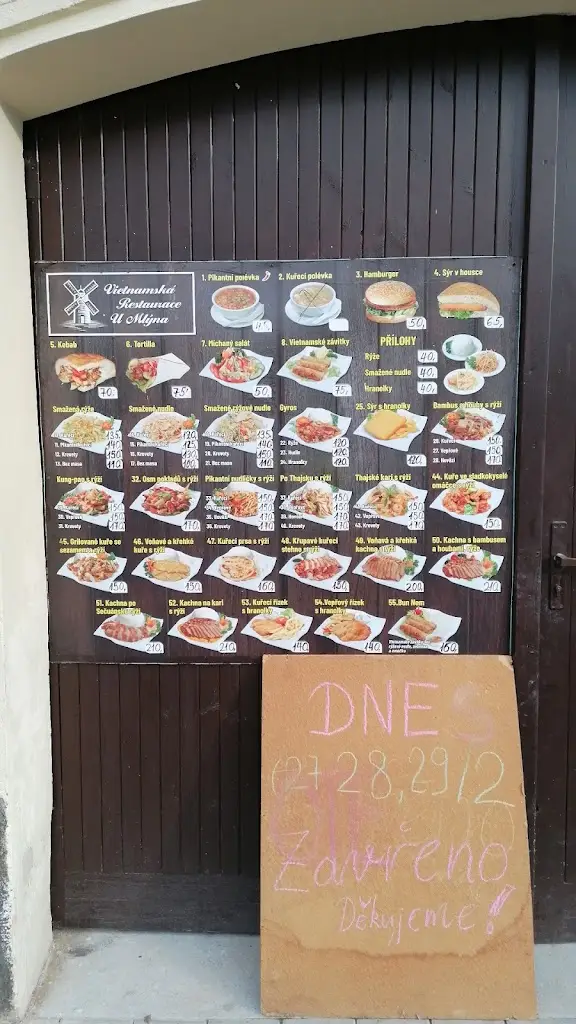 Vietnamská
Restaurace
U Mlýna
1. Pikantní polévka
45,
2. Kuřecí polévka
3. Hamburger
50,
4. Sýr v housce
65,
5. Kebab
70,
6. Tortilla
75,
7. Míchaný salát
50,
8. Vietnamské závitky
75,
PŘÍLOHY
Rýže 40,
Smažené nudle 40,
Hranolky 40,
Smažená rýže
135,
140
12. Krevety 150
13. Bez masa 110
Smažené nudle
120
125
16. Krevety 130
17. Bez masa 100
Smažené rýžové nudle
135
140
20. Krevety 150
21. Bez masa 110
Gyros
22. Rýže 120
23. Nudle 120
24. Hranolky 120
25. Sýr s hranolky
120,
Bambus a houby s rýží
26. Kuřecí 150
27. Vepřové 150
28. Hovězí 170
Kung-pao s rýží
150
30. Vepřové 150
31. Krevety 170
32. Osm pokladů s rýží
170
Pikantní nudličky s rýží
33. Kuřecí 150
150
170
36. Krevety 170
Po Thajsku s rýží
150
150
170
40. Krevety 170
Thajské kari s rýží
150
42. Vepřové 150
43. Krevety 170
44. Kuře ve sladkokyselé
omáčce s rýží
150,
45. Grilované kuře se
sezamem s rýží
150,
46. Voňavé a křehké
kuře s rýží
150
47. Kuřecí prsa s rýží
160,
48. Křupavé kuřecí
stehno s rýží
150
49. Voňavá a křehká
kachna s rýží
200,
50. Kachna s bambusem
a houbami s rýží
210,
51. Kachna po
Sečuánsku s rýží
210,
52. Kachna na kari
s rýží
210,
53. Kuřecí řízek
s hranolky
140,
54. Vepřový řízek
s hranolky
140,
55. Bun Nem
160,
DNES
27 28, 29/2
Zavřeno
Děkujeme!